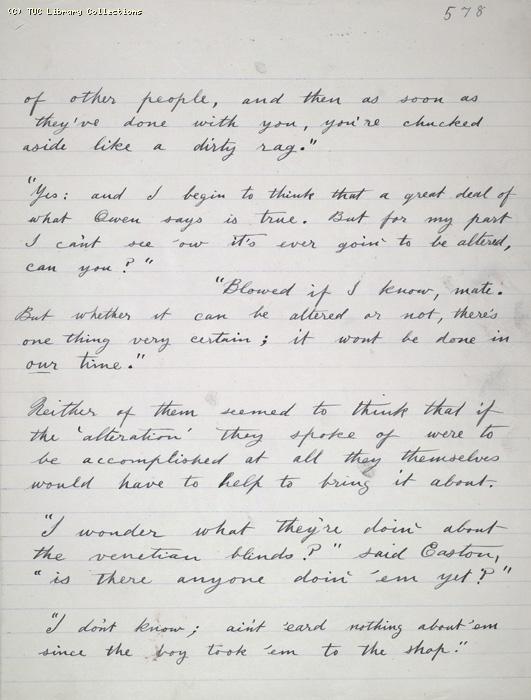 (C) TUC Library Collections
578
of other people, and then as soon as
they've done with you, you're chucked
aside like a dirty rag."
"Yes: and I begin to think that a great deal of
what Owen says is true. But for my part
I can't see 'ow it's ever goin' to be altered,
can you?"
"Blowed if I know, mate.
But whether it can be altered or not, there's
one thing very certain; it wont be done in
our time."
Neither of them seemed to think that if
the 'alteration' they spoke of were to
be accomplished at all they themselves
would have to help to bring it about.
"I wonder what they're doin' about
the venetian blinds?" said Easton,
"is there anyone doin' 'em yet?"
"I don't know; ain't 'eard nothing about 'em
since the boy took 'em to the shop."